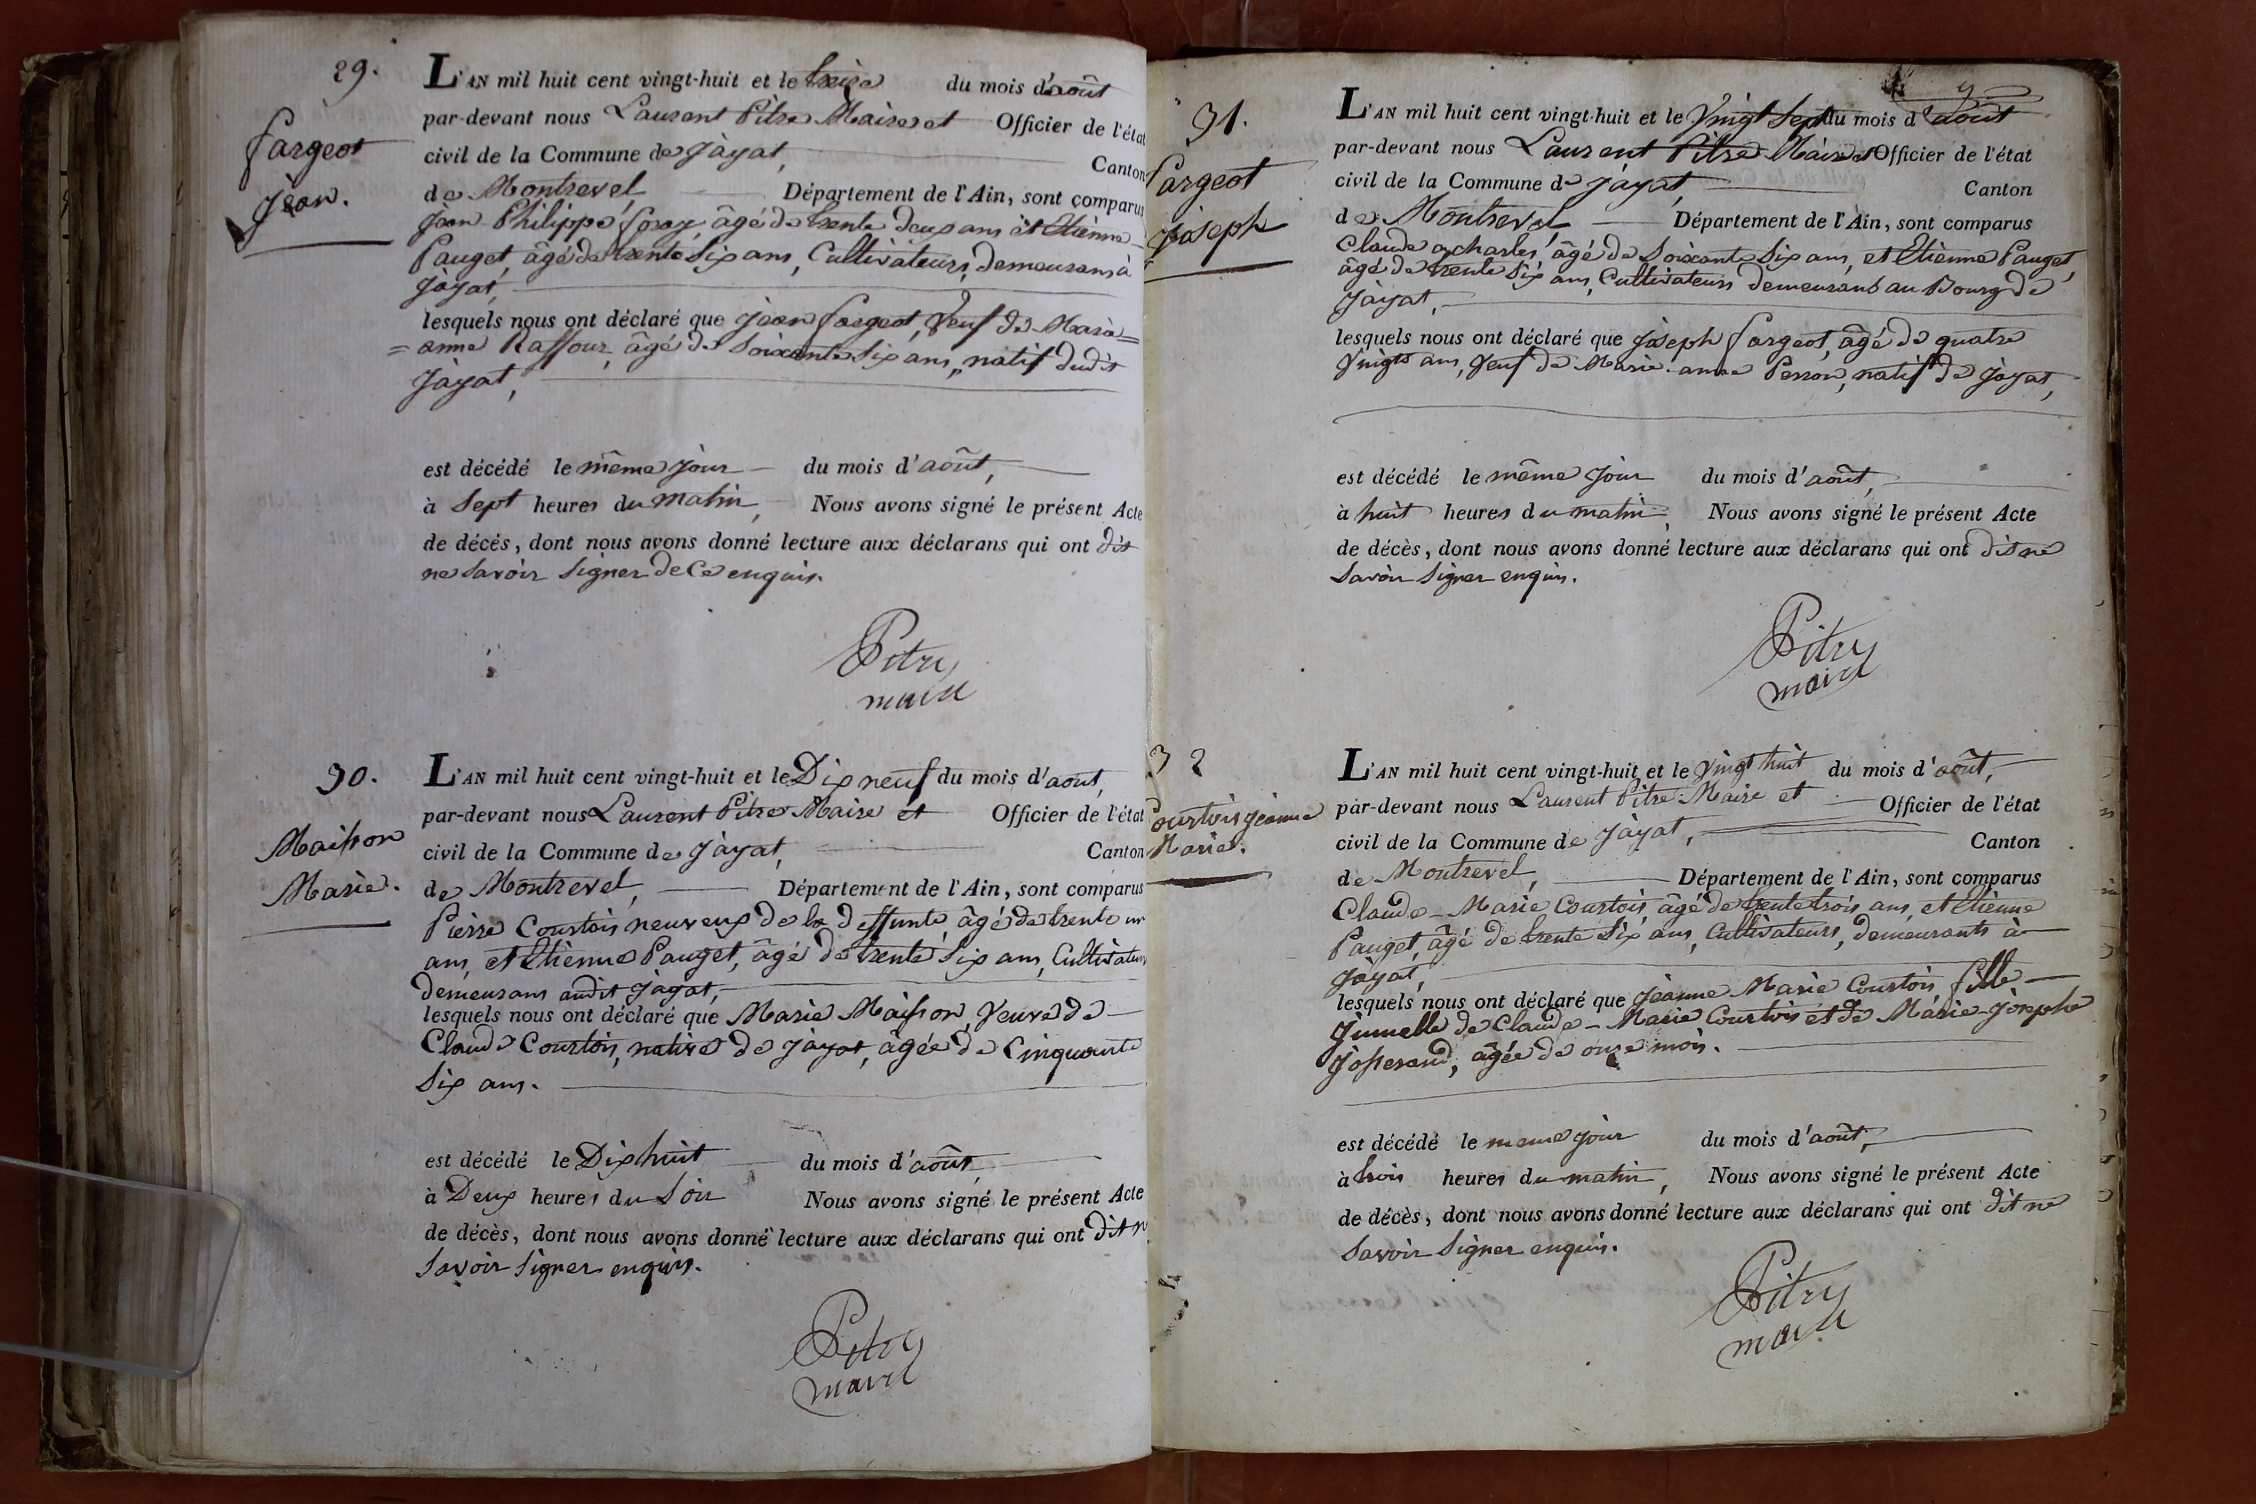 29.
fargeot
Jean.
L'AN mil huit cent vingt-huit et le treize du mois d'août
par-devant nous Laurent Pitre Maire et Officier de l'état
civil de la Commune de Jayat, Canton
de Montrevel, Département de l'Ain, sont comparus
Jean Philippe foray âgé de trente deux ans et Etienne
Pauget, âgé de trente six ans, Cultivateurs, demeurans à
Jayat,
lesquels nous ont déclaré que Jean fargeot, Veuf de Marie=
=anne Raffour, âgé de soixante six ans, natif dudit
Jayat,
est décédé le même jour du mois d'août,
à sept heures du matin, Nous avons signé le présent Acte
de décés, dont nous avons donné lecture aux déclarans qui ont dit
ne savoir signer de ce enquis.
Pitre
maire
30.
Maisson
Marie.
L'AN mil huit cent vingt-huit et le Dix neuf du mois d'août,
par-devant nous Laurent Pitre Maire et Officier de l'état
civil de la Commune de Jayat, Canton
de Montrevel, Département de l'Ain, sont comparus
Pierre Courtois neuveux de la deffunte, âgé de trente un
ans, et Etienne Pauget, âgé de trente six ans, Cultivateurs
demeurans audit Jayat,
lesquels nous ont déclaré que Marie Maisson, Veuve de
Claude Courtois, native de Jayat, âgée de Cinquante
Six ans.
est décédé le Dix huit du mois d'août,
à Deux heures du Soir Nous avons signé le présent Acte
de décès, dont nous avons donné lecture aux déclarans qui ont dit ne
savoir signer enquis.
Pitre
maire
9
31.
fargeot
Joseph
L'AN mil huit cent vingt-huit et le Vingt Sept du mois d'août
par-devant nous Laurent Pitre Maire et Officier de l'état
civil de la Commune de Jayat, Canton
de Montrevel, Département de l'Ain, sont comparus
Claude acharles, âgé de Soixante Six ans, et Etienne Pauget,
âgé de trente six ans, Cultivateurs demeurans au Bourg de
Jayat,
lesquels nous ont déclaré que Joseph fargeot, âgé de quatre
Vingts ans, Veuf de Marie-anne Perron, natif de Jayat,
est décédé le même jour du mois d'août,
à huit heures du matin, Nous avons signé le présent Acte
de décès, dont nous avons donné lecture aux déclarans qui ont dit ne
Savoir Signer enquis.
Pitre
maire
32
Courtois Jeanne
Marie.
L'AN mil huit cent vingt-huit et le vingt huit du mois d'août,
par-devant nous Laurent Pitre Maire et Officier de l'état
civil de la Commune de Jayat, Canton
de Montrevel, Département de l'Ain, sont comparus
Claude-Marie Courtois âgé de trente trois ans, et Etienne
Pauget, âgé de trente six ans, Cultivateurs, demeurants à
Jayat,
lesquels nous ont déclaré que Jeanne Marie Courtois fille
Jumelle de Claude-Marie Courtois et de Marie-Josephe
Josserand, âgée de onze mois.
est décédé le meme jour du mois d'août,
à trois heures du matin, Nous avons signé le présent Acte
de décès, dont nous avons donné lecture aux déclarans qui ont dit ne
Savoir Signer enquis.
Pitre
maire